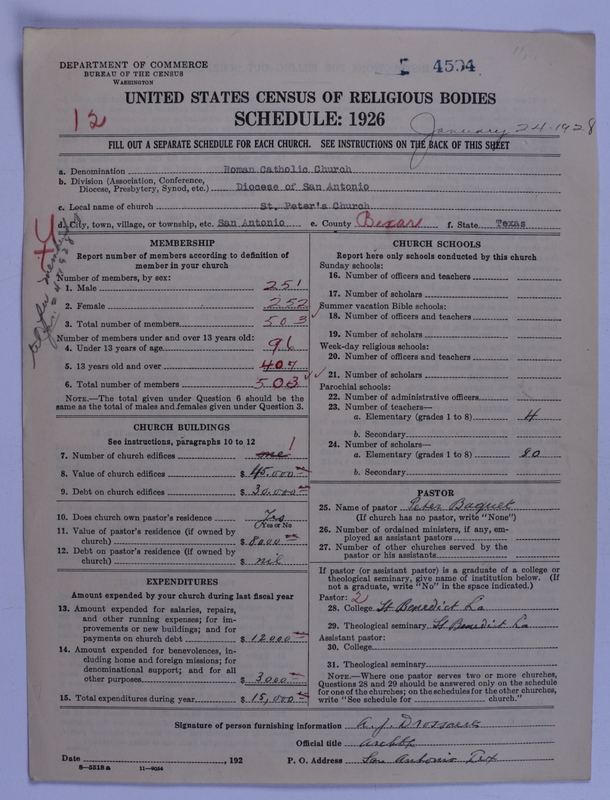 DEPARTMENT OF COMMERCE
BUREAU OF THE CENSUS
WASHINGTON
4504
UNITED STATES CENSUS OF RELIGIOUS BODIES
12
SCHEDULE: 1926
January 24-1928
FILL OUT A SEPARATE SCHEDULE FOR EACH CHURCH. SEE INSTRUCTIONS ON THE BACK OF THIS SHEET
a. Denomination Roman Catholic Church
b. Division (Association, Conference, Diocese, Presbytery, Synod, etc.) Diocese of San Antonio
c. Local name of church St. Peter's Church
d. City, town, village, or township, etc. San Antonio e. County Bexar f. State Texas
MEMBERSHIP
Report number of members according to definition of
member in your church
Number of members, by sex:
1. Male 251
2. Female 252
3. Total number of members 503
Number of members under and over 13 years old:
4. Under 13 years of age 96
5. 13 years old and over 407
6. Total number of members 503
NOTE.—The total given under Question 6 should be
same as the total of males and females given under Question 3.
CHURCH BUILDINGS
See instructions, paragraphs 10 to 12
7. Number of church edifices one 1
8. Value of church edifices $ 45,000
9. Debt on church edifices $ 30,000
10. Does church own pastor's residence Yes
(Yes or No)
11. Value of pastor's residence (if owned by
church) $ 8000
12. Debt on pastor's residence (if owned by
church) $ nil
EXPENDITURES
Amount expended by your church during last fiscal year
13. Amount expended for salaries, repairs,
and other running expenses; for im-
provements or new buildings; and for
payments on church debt $ 12000
14. Amount expended for benevolences, in-
cluding home and foreign missions; for
denominational support; and for all
other purposes $ 3000
15. Total expenditures during year $ 15,000
CHURCH SCHOOLS
Report here only schools conducted by this church
Sunday schools:
16. Number of officers and teachers
17. Number of scholars
Summer vacation Bible schools:
18. Number of officers and teachers
19. Number of scholars
Week-day religious schools:
20. Number of officers and teachers
21. Number of scholars
Parochial schools:
22. Number of administrative officers
23. Number of teachers—
a. Elementary (grades 1 to 8) 4
b. Secondary
24. Number of scholars—
a. Elementary (grades 1 to 8) 80
b. Secondary
PASTOR
25. Name of pastor Peter Baquet
(If church has no pastor, write "None")
26. Number of ordained ministers, if any, em-
ployed as assistant pastors
27. Number of other churches served by the
pastor or his assistants
If pastor (or assistant pastor) is a graduate of a college or
theological seminary, give name of institution below. (If
not a graduate, write "No" in the space indicated.)
Pastor: 2
28. College St Benedict La
29. Theological seminary St Benedict La
Assistant pastor:
30. College
31. Theological seminary
NOTE.—Where one pastor serves two or more churches,
Questions 28 and 29 should be answered only on the schedule
for one of the churches; on the schedules for the other churches,
write "See schedule for church."
Signature of person furnishing information A. J. Drossaerts
Official title Archbp
Date , 192 P. O. Address San Antonio Tex
8—5518a 11—9054